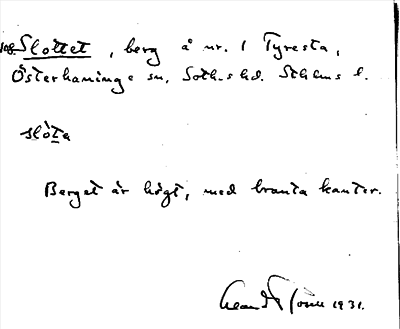 Slottet, berg å nr. 1 Tyresta,
Österhaninge sn, Soth.s hd. Sthlms l.
slòta
Berget är högt, med branta kanter.
1931.